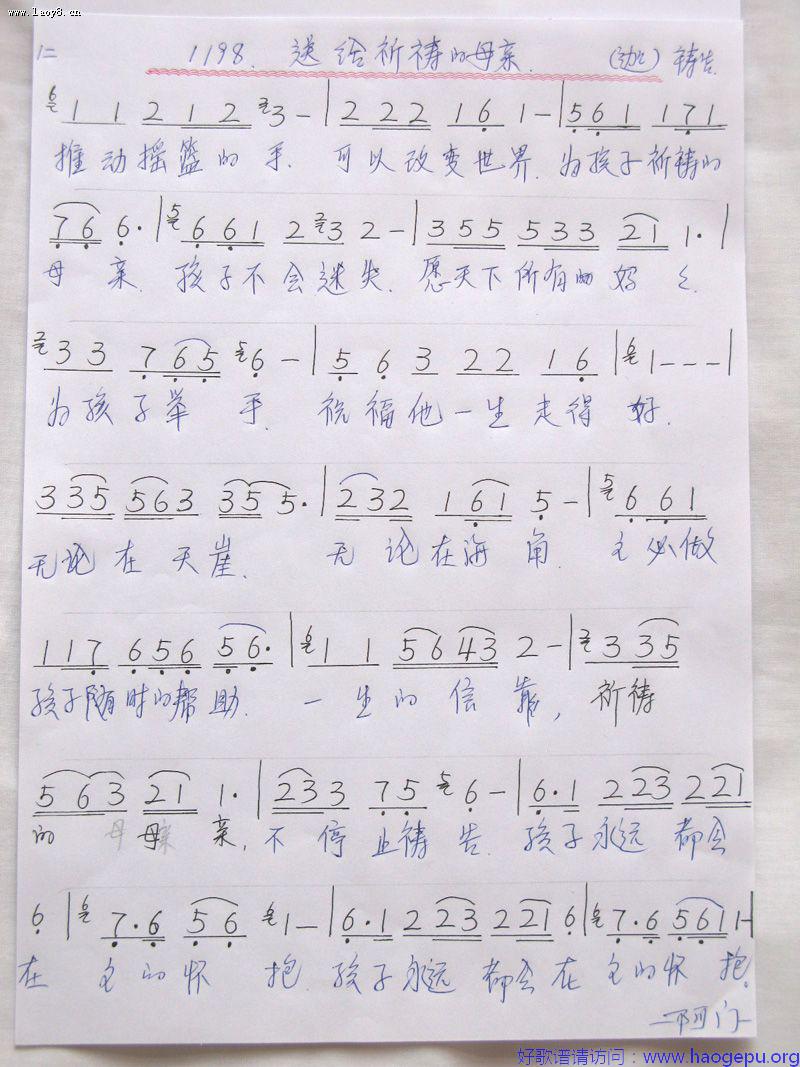 www.laoy8.cn
1198. 送给祈祷的母亲. 祷告.
6 1 1 2 1 2 2 3 – | 2 2 2 2 1 6 1 – | 5 6 1 1 7 1
推动摇篮的手. 可以改变世界. 为孩子祈祷的
7 6 6· | 5 6 6 6 1 2 2 3 2 – | 3 5 5 5 3 3 2 1 1· |
母 亲. 孩子不会迷失. 愿天下所有的妈
2 3 3 7 6 5 5 6 – | 5 6 3 2 2 1 6 | 6 1 – – – |
为孩子举 手. 祝福他一生走得 好.
3 3 5 5 6 3 3 5 5· | 2 3 2 1 6 1 5 – | 5 6 6 1
无论在天崖. 无论在海角. 主必做
1 1 7 6 5 6 5 6· | 6 1 1 5 6 4 3 2 – | 2 3 3 5
孩子随时的帮助. 一生的信靠, 祈祷
5 6 3 2 1 1· | 2 3 3 7 5 5 6 – | 6·1 2 2 3 2 2 1
的 母亲, 不停止祷告. 孩子永远都会
6 | 6 7·6 5 6 6 1 – | 6·1 2 2 3 2 2 1 6 | 6 7·6 5 6 1 1 –
在 主的怀 抱. 孩子永远 都会在 主的怀 抱.
—阿门—
好歌谱请访问：www.haogepu.org